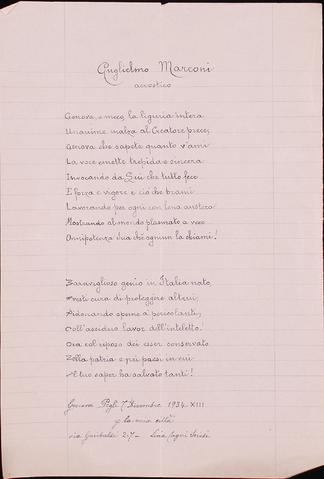 Guglielmo Marconi
acrostico
Genova, e meco la liguria intera
Unanime inalza al Creatore prece;
Genova che sapete quanto v'ami
La voce emette trepida e sincera
Invocando da Lui che tutto fece
E forza e vigore e ciò che brami
Lavorando per ogni con lena austera
Mostrando al mondo plasmato a vece
Onnipotenza sua che ognun la chiami!
Maraviglioso genio in Italia nato
Avesti cura di proteggere altrui;
Ridonando speme a' pericolanti;
Coll'assiduo lavor dell'intelletto!
Ora col riposo dei esser conservato
Nella patria e pei paesi in cui
Il tuo saper ha salvato tanti!
Genova Pegli 7 Dicembre 1934 XIII
via Garibaldi 27 -